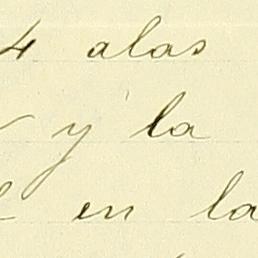 4 alas
y la
en la